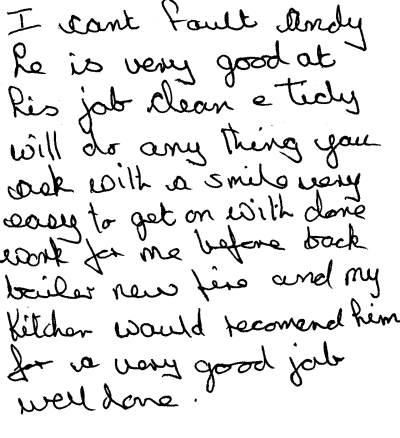 I cant fault Andy
he is very good at
his job clean & Tidy
will do any thing you
ask with a smile very
easy to get on with done
work for me before back
boiler new fire and my
Kitchen would recomend him
for a very good job
well done.